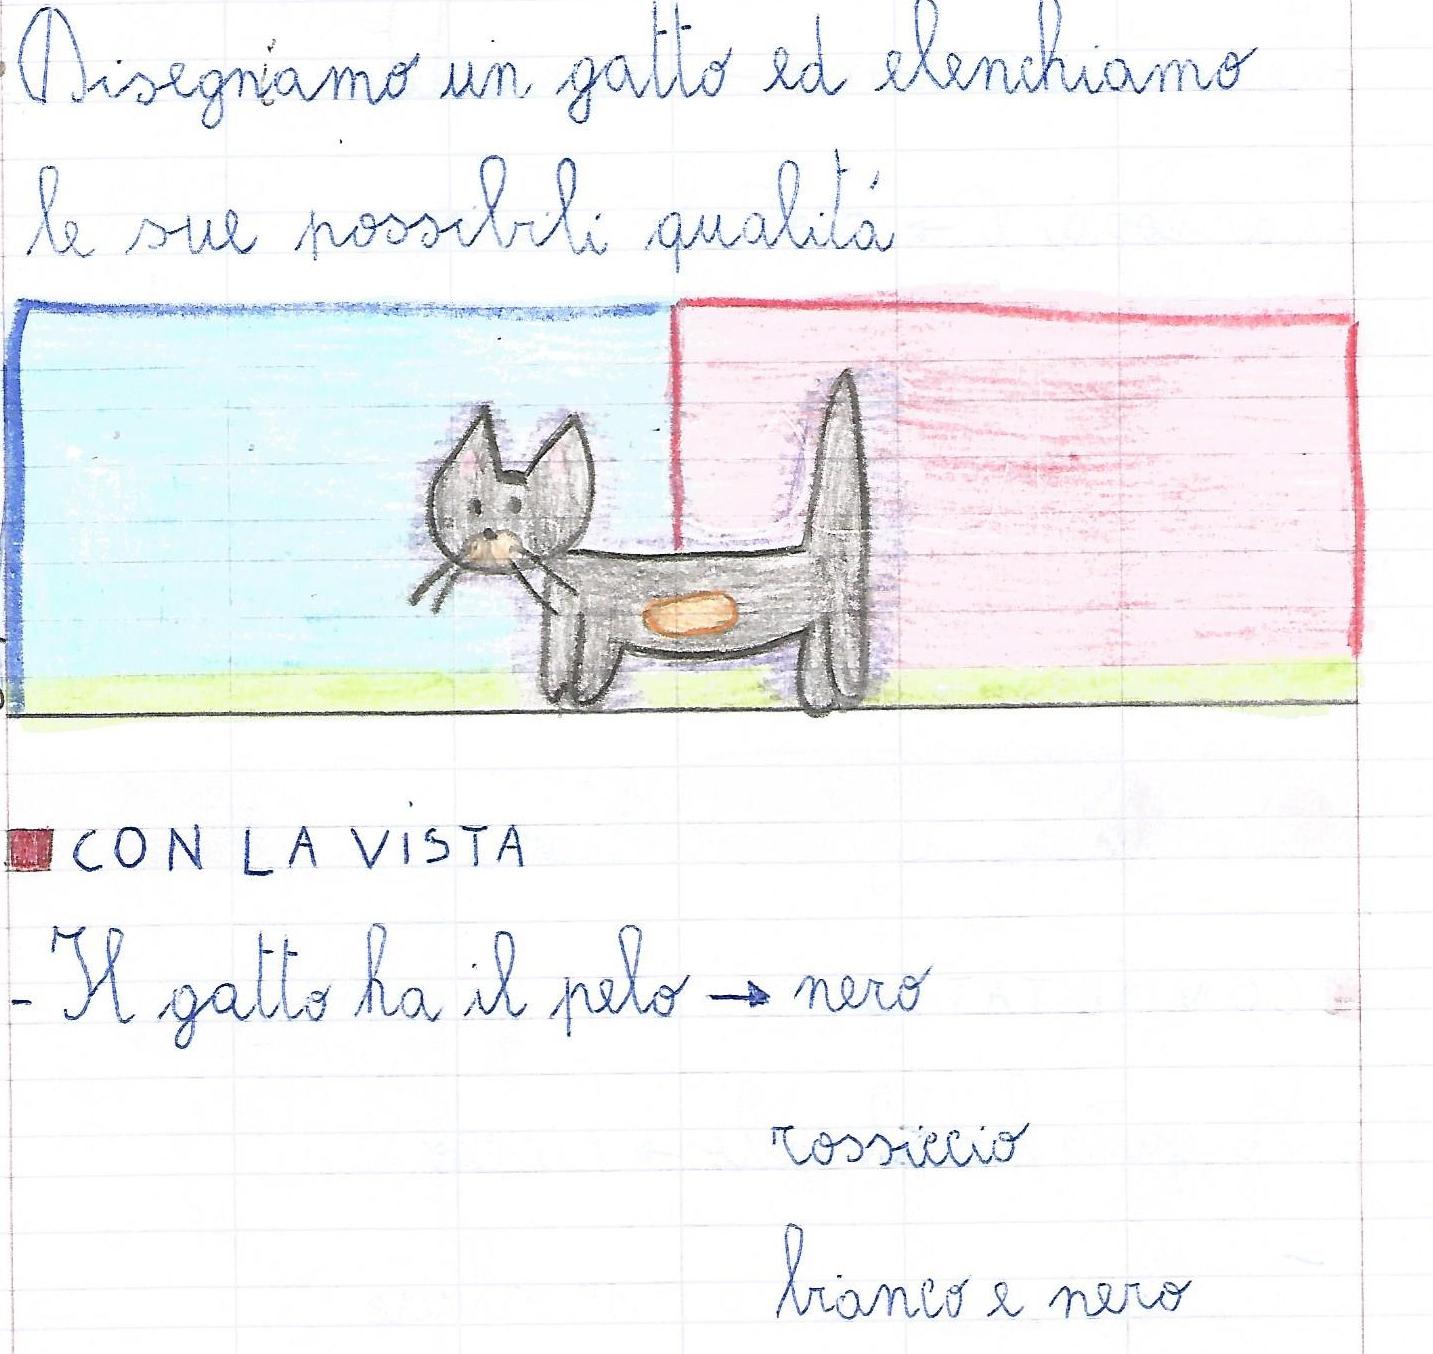 Disegniamo un gatto ed elenchiamo
le sue possibili qualitá
CON LA VISTA
- Il gatto ha il pelo → nero
rossiccio
bianco e nero